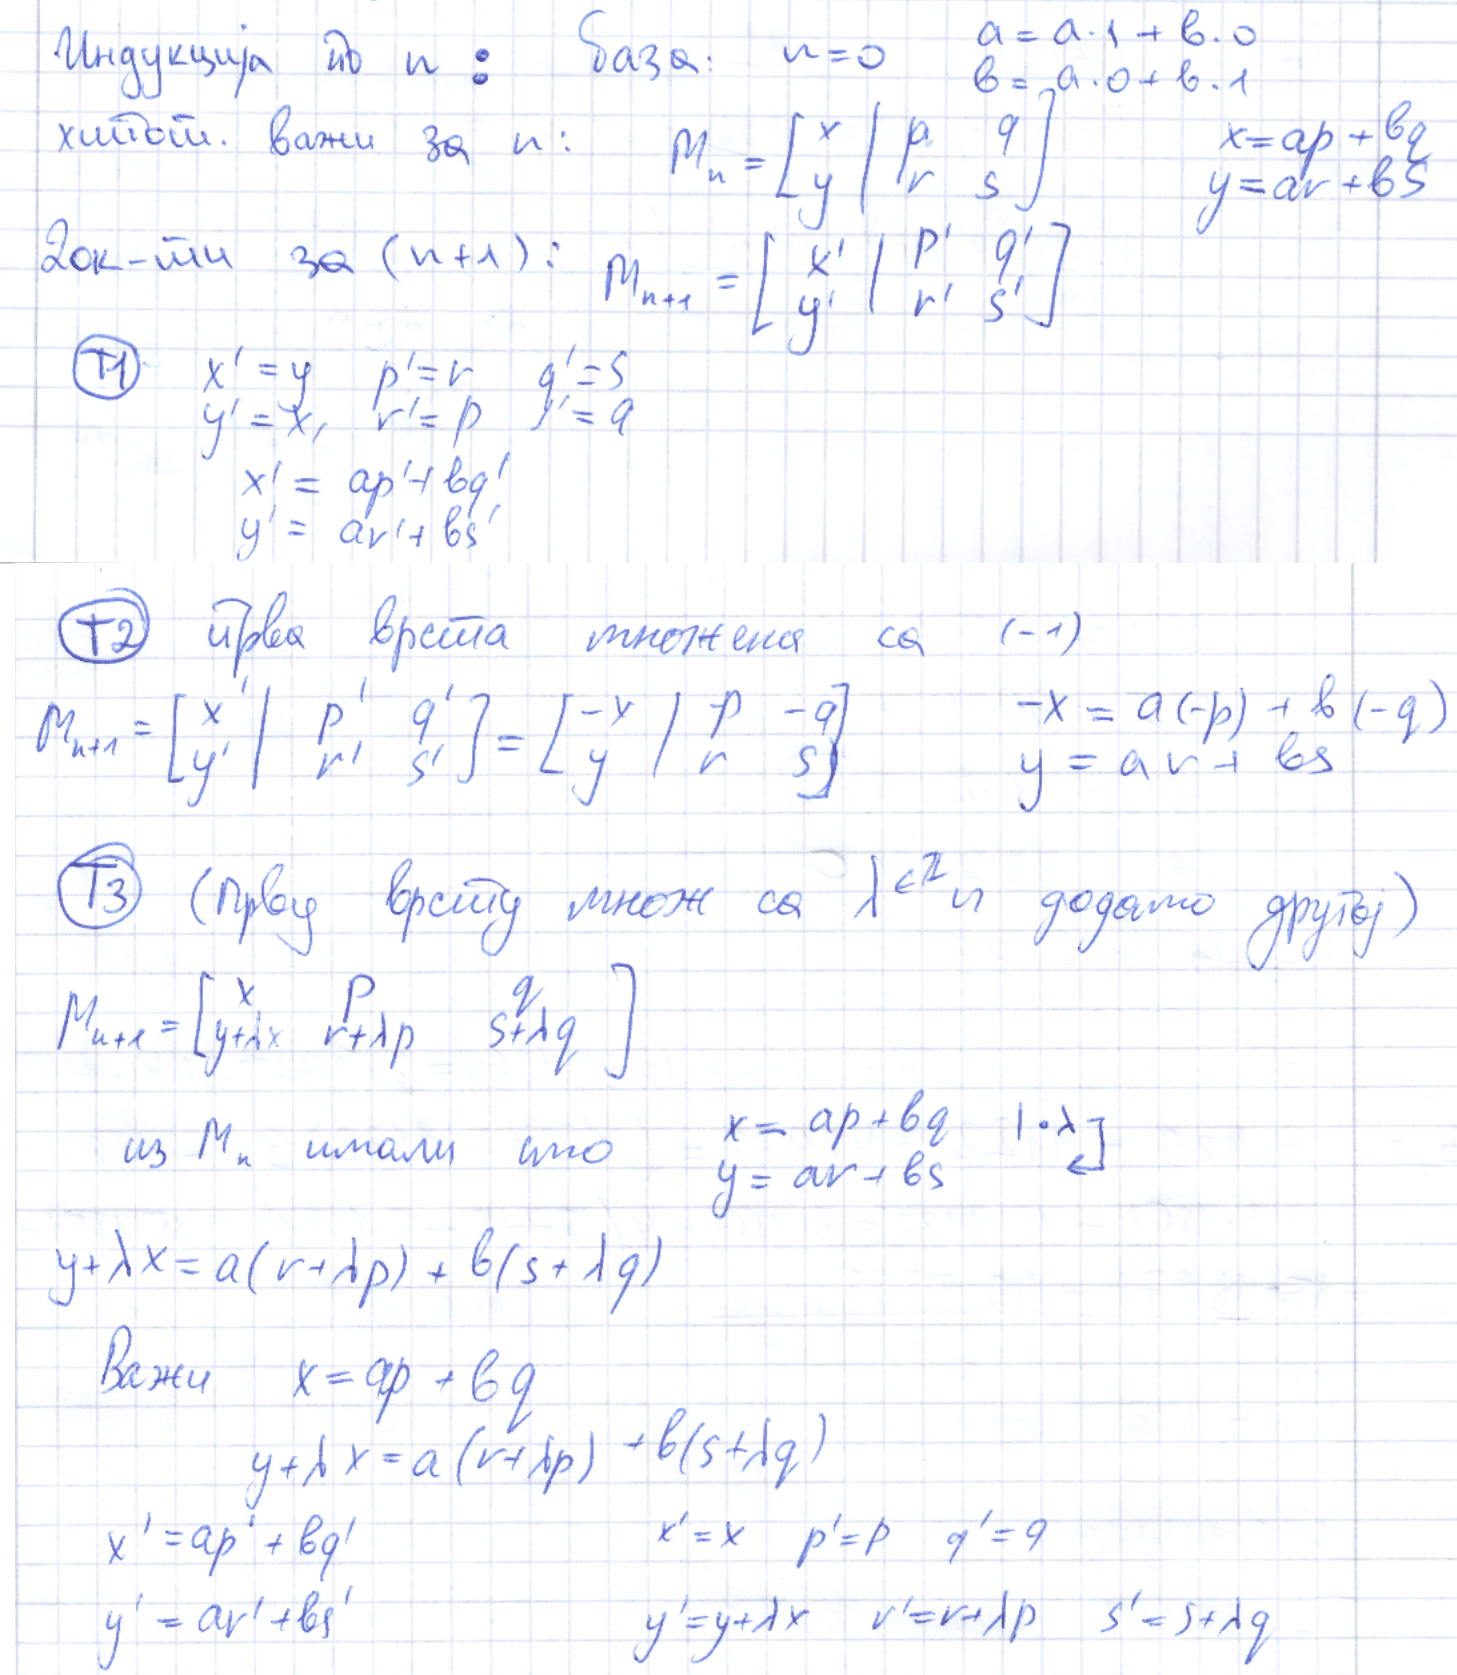 Индукција по n : база: n=0 a=a·1+b·0
b=a·0+b·1
хипот. важи за n: Mₙ = [x | p q x=ap+bq
y | r s] y=ar+bs
док-ти за (n+1): Mₙ₊₁ = [x' | p' q'
y' | r' s']
T1 x'=y p'=r q'=s
y'=x, r'=p s'=q
x'=ap'+bq'
y'=ar'+bs'
T2 прва врста множена са (-1)
Mₙ₊₁ = [x' | p' q' = [-x | -p -q -x=a(-p)+b(-q)
y' | r' s'] y | r s] y=ar+bs
T3 (прву врсту множ са λ∈ℤ и додамо другој)
Mₙ₊₁ = [x p q
y+λx r+λp s+λq]
из Mₙ имали смо x=ap+bq |·λ
y=ar+bs
y+λx=a(r+λp)+b(s+λq)
Важи x=ap+bq
y+λx=a(r+λp)+b(s+λq)
x'=ap'+bq' x'=x p'=p q'=q
y'=ar'+bs' y'=y+λx r'=r+λp s'=s+λq